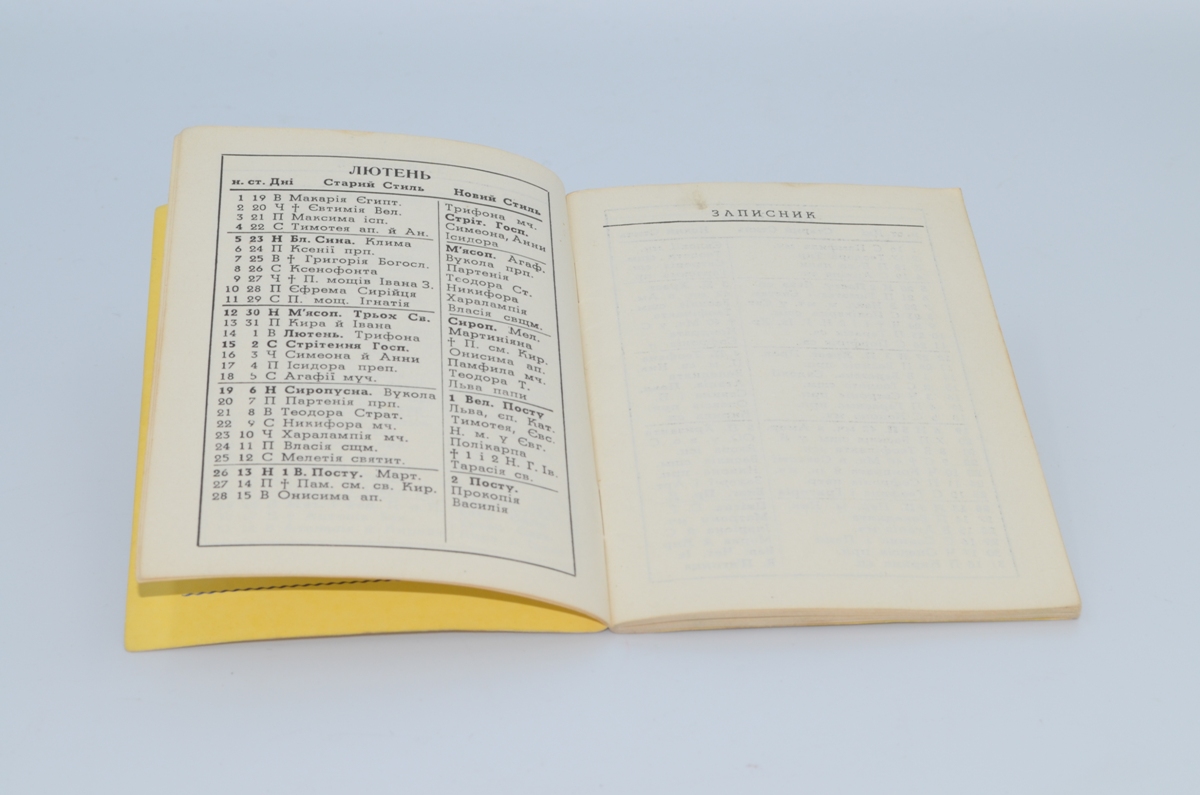 ЛЮТЕНЬ
н. ст. Дні Старий Стиль Новий Стиль
1 19 В Макарія Єгипт. Трифона мч.
2 20 Ч † Євтимія Вел. Стріт. Госп.
3 21 П Максима ісп. Симеона, Анни
4 22 С Тимотея ап. й Ан. Ісидора
5 23 Н Бл. Сина. Клима М'ясоп. Агаф.
6 24 П Ксенії прп. Вукола прп.
7 25 В † Григорія Богосл. Партенія
8 26 С Ксенофонта Теодора Ст.
9 27 Ч † П. мощів Івана З. Никифора
10 28 П Єфрема Сирійця Харалампія
11 29 С П. мощ. Ігнатія Власія свщм.
12 30 Н М'ясоп. Трьох Св. Сироп. Мел.
13 31 П Кира й Івана Мартиніяна
14 1 В Лютень. Трифона † П. см. Кир.
15 2 С Стрітення Госп. Онисима ап.
16 3 Ч Симеона й Анни Памфила мч.
17 4 П Ісидора преп. Теодора Т.
18 5 С Агафії муч. Льва папи
19 6 Н Сиропусна. Вукола 1 Вел. Посту
20 7 П Партенія прп. Льва, єп. Кат.
21 8 В Теодора Страт. Тимотея, Євс.
22 9 С Никифора мч. Н. м. у Євг.
23 10 Ч Харалампія мч. Полікарпа
24 11 П Власія сщм. † 1 і 2 Н. Г. Ів.
25 12 С Мелетія святит. Тарасія св.
26 13 Н 1 В. Посту. Март. 2 Посту.
27 14 П † Пам. см. св. Кир. Прокопія
28 15 В Онисима ап. Василія
ЗАПИСНИК